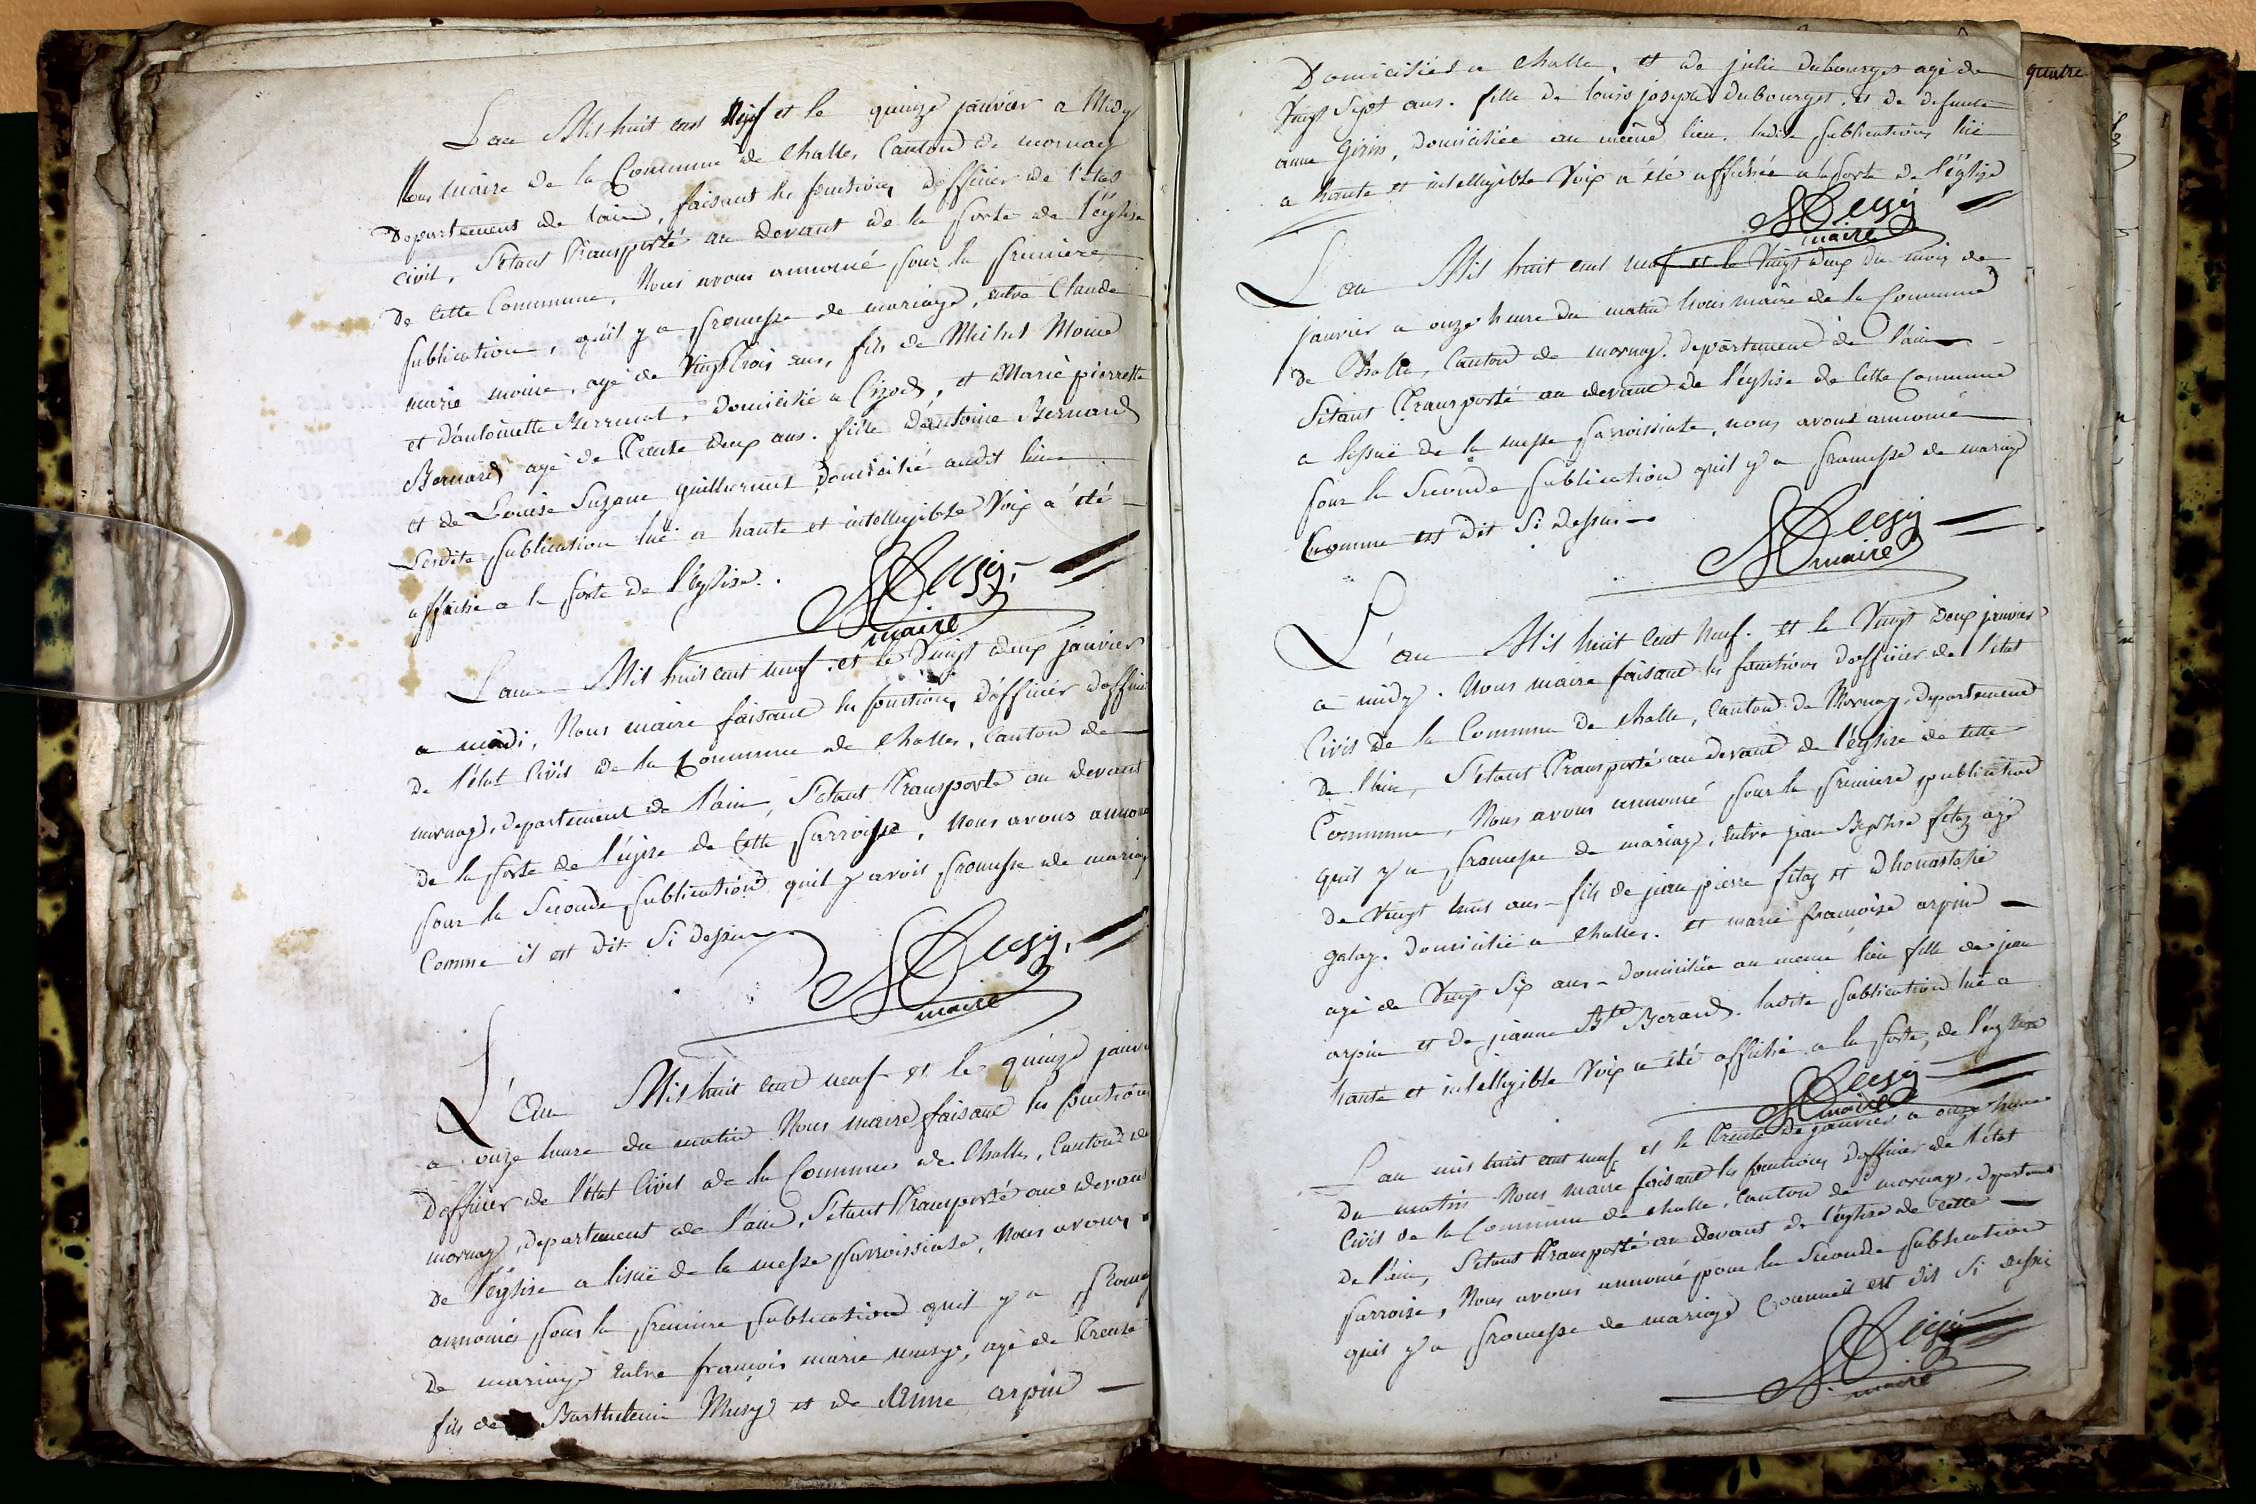 L'an Mil huit cent Neuf et le quinze janvier a Midy
Nous Maire de la Commune de Challes Canton de mornay
Departement de lain, faisant les fonctions d'officier de l'Etat
civil, S'étant Transporté au devant de la porte de l'église
de Cette Commune, Nous avons annoncé pour la premiere
publication, qu'il y a promesse de mariage, entre Claude
marie moine, agé de Vingt trois ans, fils de Michel Moine
et d'antoinette Berrod, domicilié a Cizod, et Marie pierrette
Bernard agé de Trente deux ans. fille d'antoine Bernard
et de Louise Suzane guillermet Domicilié audit lieu
Lesdite publication lue a haute et intelligible Voix a été
affichée a la porte de l'église.
maire
L'an Mil huit cent neuf. et le Vingt deux janvier
a midi, Nous maire faisant les fonctions d'officier d'officier
de l'état Civil de la Commune de Challes, Canton de
mornay, departement de l'ain, S'étant Transporté au devant
de la porte de l'église de Cette parroisse, Nous avons annoncé
pour la Seconde publication qu'il y avoit promesse de mariage
Comme il est Dit Si dessus
maire
L'an Mil huit cent neuf et le quinze janvier
a onze heure du matin Nous Maire faisant les fonctions
d'officier de l'état Civil de la Commune de Challes, Canton de
mornay, departement de l'ain, S'étant Transporté au devant
de l'église a lissuë de la messe parroissiale, Nous avons
annoncés pour la premiere publication qu'il y a promesse
de mariage entre françois marie musy, agé de Trente
fils de Barthelemi Musy et de Anne arpin
Domiciliés a Challe, et de julie dubourget agé de quatre
Vingt Sept ans. fille de louis joseph Dubourget, et de defunte
anne Girin, domiciliée au même lieu. ladite publication lüe
a haute et intelligible Voix a été affichée a la porte de l'église
maire
L'an Mil huit cent neuf et le Vingt deux du mois de
janvier a onze heure du matin Nous maire de la Commune
de Challe, Canton de mornay. departement de l'ain
S'étant Transporté au devant de l'église de Cette Commune
a lissuë de la messe parroissiale, nous avons annoncé
pour la Seconde publication qu'il y a promesse de mariage
Comme est dit Si dessus
maire
L'an Mil huit cent Neuf. et le Vingt deux janvier
a midy. Nous maire faisant les fonctions d'officier de l'état
Civil de la Commune de Challe, Canton de Mornay, departement
de l'ain, S'étant Transporté au devant de l'église de Cette
Commune, Nous avons annoncé pour la premiere publication
quil y a promesse de mariage, entre jean Baptiste fetaz agé
de Vingt huit ans fils de jean pierre fetaz et d'honastasie
galay. domicilié a Challes. et marie françoise arpin
agé de Vingt Six ans domiciliée au meme lieu fille de jean
arpin et de jeanne Bte Berard. ladite publication lue a
haute et intelligible Voix a été affichée a la porte de l'église
maire
L'an mil huit cent neuf et le Trente de janvier a onze heure
du matin Nous maire faisant les fonctions d'officier de l'état
Civil de la Commune de Challe, Canton de mornay, departement
de l'ain, S'étant Transporté au devant de l'église de Cette
parroise, Nous avons annoncé pour la Seconde publication
quil y a promesse de mariage Comme il est dit Si dessus
maire